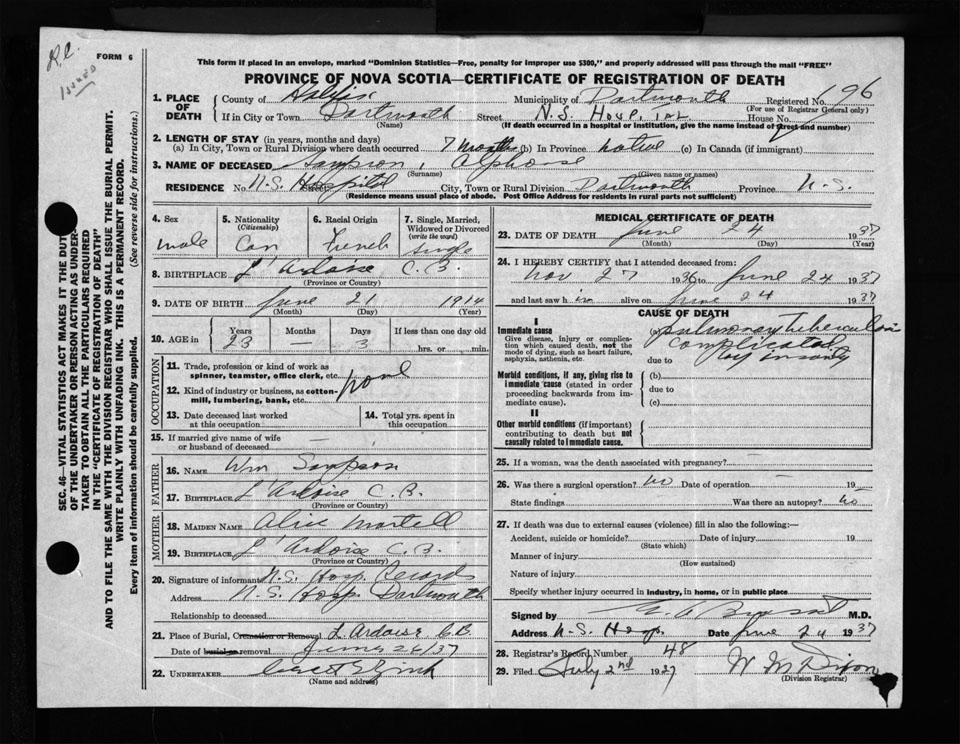 R.C.
FORM 6
This form if placed in an envelope, marked "Dominion Statistics—Free, penalty for improper use $300," and properly addressed will pass through the mail "FREE"
PROVINCE OF NOVA SCOTIA—CERTIFICATE OF REGISTRATION OF DEATH
1. PLACE OF DEATH
County of Halifax Municipality of Dartmouth Registered No. 196
(For use of Registrar General only)
If in City or Town Dartmouth Street N.S. Hosp. House No.
(Name) (If death occurred in a hospital or institution, give the name instead of street and number)
2. LENGTH OF STAY (in years, months and days)
(a) In City, Town or Rural Division where death occurred 7 months (b) In Province native (c) In Canada (if immigrant)
3. NAME OF DECEASED Sampson, Alphonse
(Surname) (Given name or names)
RESIDENCE No. N.S. Hospital Street City, Town or Rural Division Dartmouth Province N.S.
(Residence means usual place of abode. Post Office Address for residents in rural parts not sufficient)
SEC. 46—VITAL STATISTICS ACT MAKES IT THE DUTY
OF THE UNDERTAKER OR PERSON ACTING AS UNDER-
TAKER TO OBTAIN ALL THE PARTICULARS REQUIRED
IN THE "CERTIFICATE OF REGISTRATION OF DEATH"
AND TO FILE THE SAME WITH THE DIVISION REGISTRAR WHO SHALL ISSUE THE BURIAL PERMIT.
WRITE PLAINLY WITH UNFADING INK. THIS IS A PERMANENT RECORD.
Every item of information should be carefully supplied. (See reverse side for instructions.)
4. Sex
male
5. Nationality
(Citizenship)
Can
6. Racial Origin
French
7. Single, Married,
Widowed or Divorced
(write the word)
Single
8. BIRTHPLACE L'Ardoise C.B.
(Province or Country)
9. DATE OF BIRTH June 21 1914
(Month) (Day) (Year)
10. AGE in
Years Months Days If less than one day old
23 — 3 hrs. or min.
OCCUPATION
11. Trade, profession or kind of work as
spinner, teamster, office clerk, etc.
none
12. Kind of industry or business, as cotton-
mill, lumbering, bank, etc.
13. Date deceased last worked
at this occupation
14. Total yrs. spent in
this occupation
15. If married give name of wife
or husband of deceased —
FATHER
16. NAME Wm Sampson
17. BIRTHPLACE L'Ardoise C.B.
(Province or Country)
MOTHER
18. MAIDEN NAME Alice Martell
19. BIRTHPLACE L'Ardoise C.B.
(Province or Country)
20. Signature of informant N.S. Hosp. Records
Address N.S. Hosp. Dartmouth
Relationship to deceased
21. Place of Burial, Cremation or Removal L'Ardoise C.B.
Date of burial or removal June 26/37
22. UNDERTAKER
(Name and address)
MEDICAL CERTIFICATE OF DEATH
23. DATE OF DEATH June 24 1937
(Month) (Day) (Year)
24. I HEREBY CERTIFY that I attended deceased from:
Nov 27 1936 to June 24 1937
and last saw him alive on June 24 1937
CAUSE OF DEATH
I
Immediate cause
Give disease, injury or complica-
tion which caused death, not the
mode of dying, such as heart failure,
asphyxia, asthenia, etc.
(a) pulmonary tuberculosis
complicated
due to by insanity
Morbid conditions, if any, giving rise to
immediate cause (stated in order
proceeding backwards from im-
mediate cause).
(b)
due to
(c)
II
Other morbid conditions (if important)
contributing to death but not
causally related to immediate cause.
25. If a woman, was the death associated with pregnancy? —
26. Was there a surgical operation? no Date of operation — 19
State findings Was there an autopsy? no
27. If death was due to external causes (violence) fill in also the following:—
Accident, suicide or homicide? Date of injury 19
(State which)
Manner of injury
(How sustained)
Nature of injury
Specify whether injury occurred in industry, in home, or in public place
Signed by M.D.
Address N.S. Hosp. Date June 24 1937
28. Registrar's Record Number 48
29. Filed July 2nd 1937 W M Dixon
(Division Registrar)